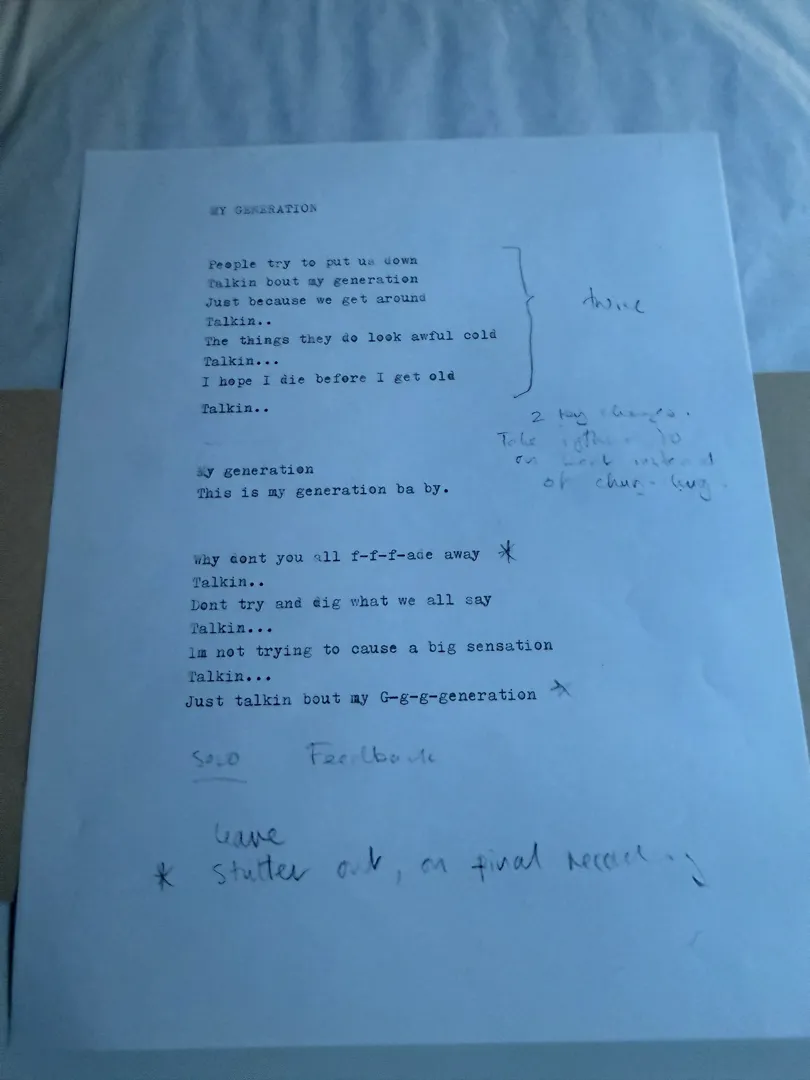 MY GENERATION
People try to put us down
Talkin bout my generation
Just because we get around
Talkin..
The things they do look awful cold
Talkin...
I hope I die before I get old
Talkin..
twice
2 key changes.
on instead
of
My generation
This is my generation ba by.
Why dont you all f-f-f-ade away *
Talkin..
Dont try and dig what we all say
Talkin...
Im not trying to cause a big sensation
Talkin...
Just talkin bout my G-g-g-generation *
Solo Feedback
leave
* Stutter out, on final recording